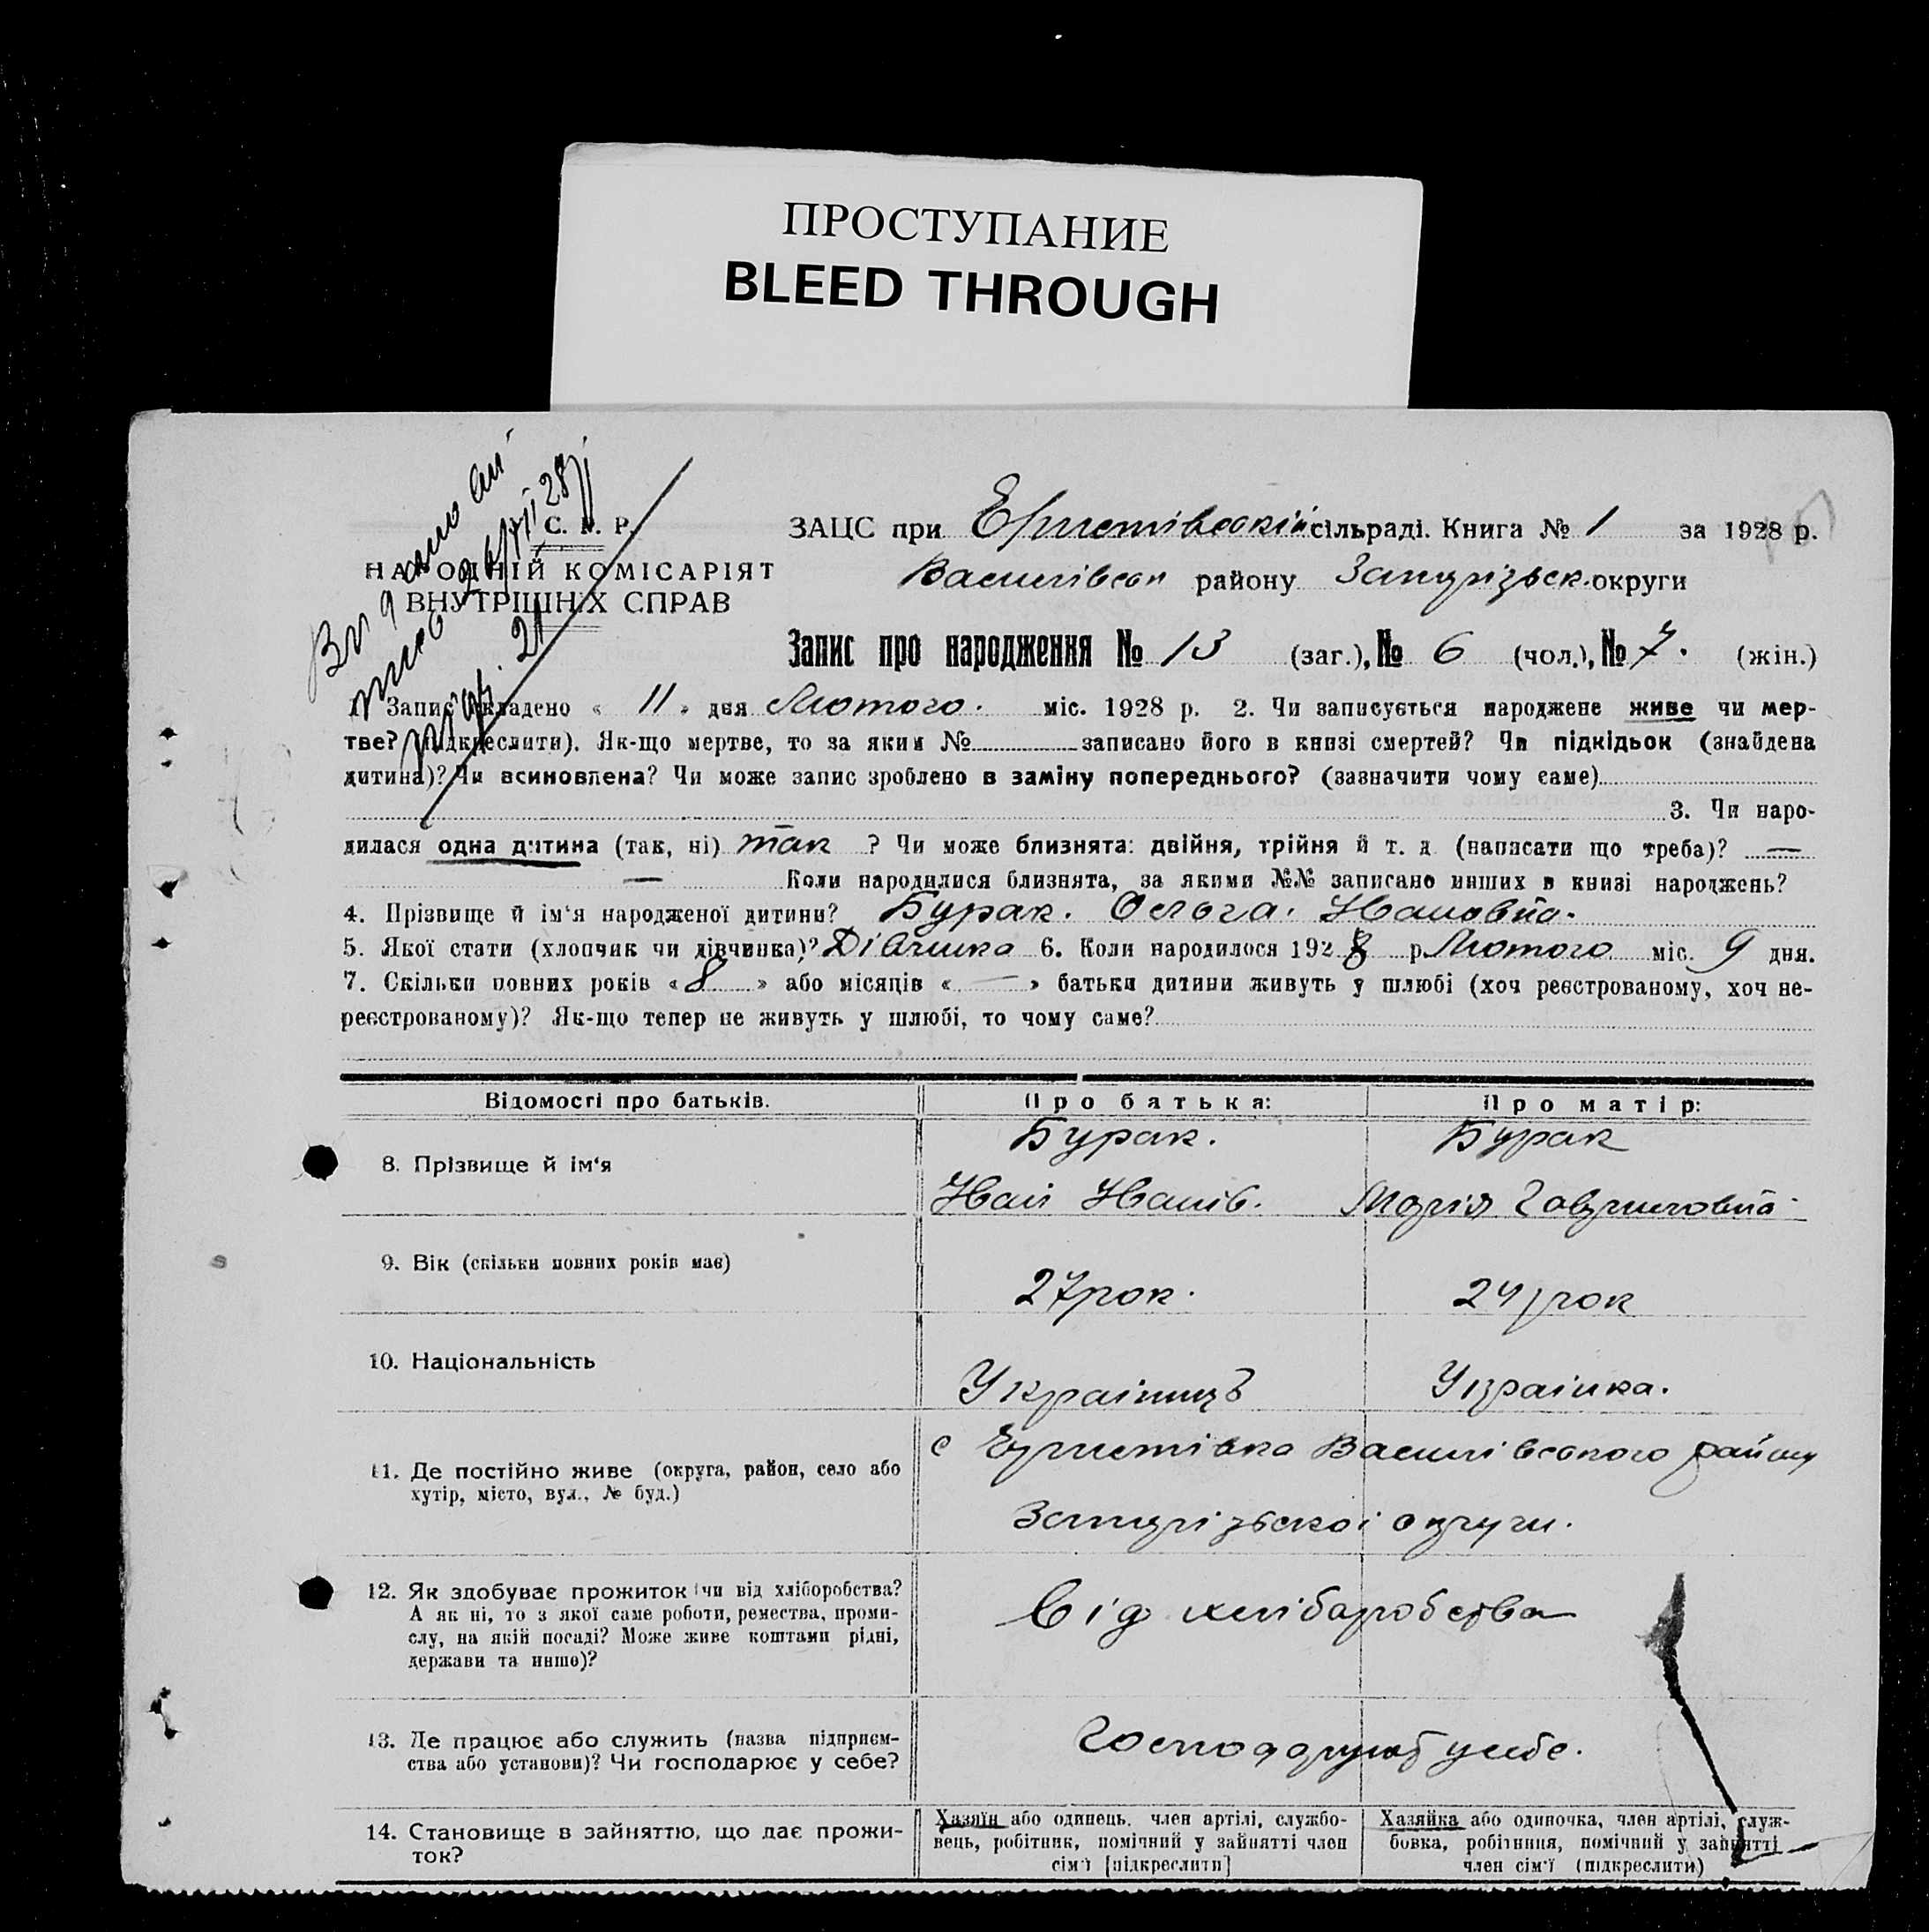 ПРОСТУПАНИЕ
BLEED THROUGH
НАРОДНІЙ КОМІСАРІЯТ
ВНУТРІШНІХ СПРАВ
ЗАЦС при Ериставській сільраді. Книга № 1 за 1928 р.
Василівськ району Запорізьк. округи
Запис про народження № 13 (заг.), № 6 (чол.), № 7. (жін.)
1. Запис складено « 11 » дня Лютого. міс. 1928 р. 2. Чи записується народжене живе чи мер-
тве? (підкреслити). Як-що мертве, то за яким № записано його в книзі смертей? Чи підкідьок (знайдена
дитина)? Чи всиновлена? Чи може запис зроблено в заміну попереднього? (зазначити чому саме)
3. Чи наро-
дилася одна дитина (так, ні) так ? Чи може близнята: двійня, трійня й т. д. (написати що треба)? —
— Коли народилися близнята, за якими №№ записано инших в книзі народжень?
4. Прізвище й ім‘я народженої дитини? Бурак. Ольга. Івановна.
5. Якої стати (хлопчик чи дівчинка)? Дівчинка 6. Коли народилося 1928 р Лютого міс. 9 дня.
7. Скільки повних років « 8 » або місяців « — » батьки дитини живуть у шлюбі (хоч реєстрованому, хоч не-
реєстрованому)? Як-що тепер не живуть у шлюбі, то чому саме?
Відомості про батьків. Про батька: Про матір:
8. Прізвище й ім‘я
Бурак. Бурак
Іван Іванів. Марія Гавриловна
9. Вік (скільки повних років має)
27 рок. 24 рок
10. Національність
Українць Українка.
11. Де постійно живе (округа, район, село або
хутір, місто, вул., № буд.)
с Василівського району
Запорізької округи.
12. Як здобуває прожиток (чи від хліборобства?
А як ні, то з якої саме роботи, ремества, проми-
слу, на якій посаді? Може живе коштами рідні,
держави та инше)?
Від хліборобства
13. Де працює або служить (назва підприєм-
ства або установи)? Чи господарює у себе?
Господарює у себе.
14. Становище в зайняттю, що дає прожи-
ток?
Хазяїн або одинець, член артілі, службо-
вець, робітник, помічний у зайнятті член
сім‘ї [підкреслити]
Хазяйка або одиночка, член артілі, служ-
бовка, робітниця, помічний у зайнятті
член сім‘ї (підкреслити)